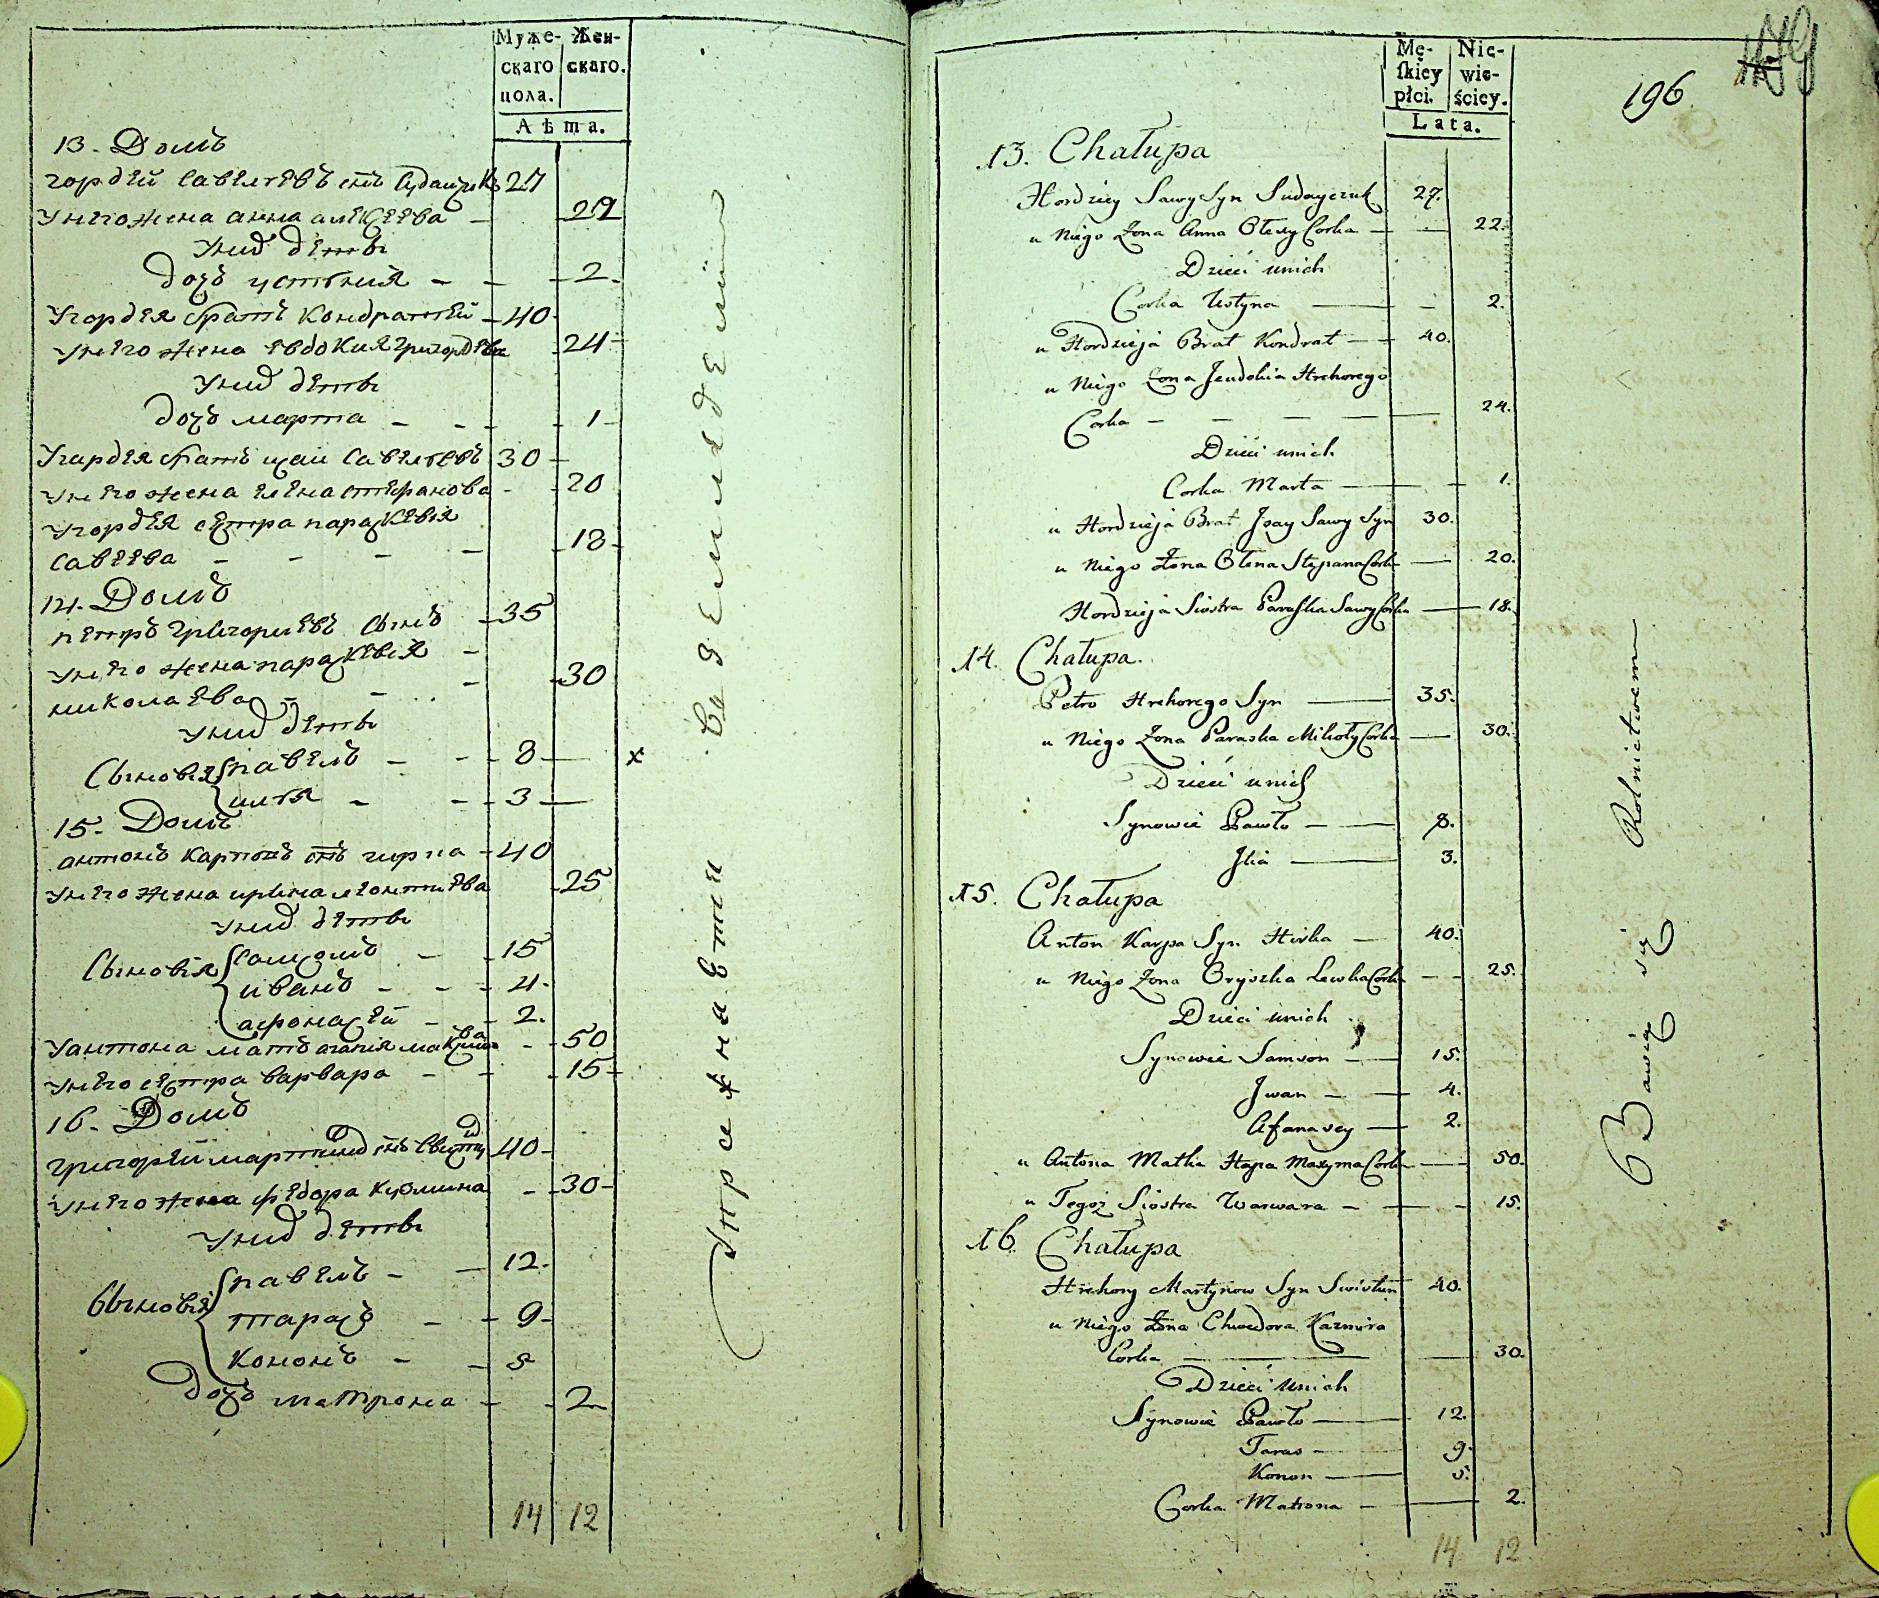 Муже-
скаго
пола.
Жен-
скаго.
Лѣта.
13. Домъ
гордѣй савельевъ снъ судайчукъ 27
унего жена анна алексѣева - 22
унихъ дѣти
дочь устиния - - - 2
угордѣя братъ кондратѣй - 40
унего жена евдокия григорѣва 24
унихъ дѣти
дочь марта - - - 1
угардѣя братъ исаи савельевъ 30
унего жена елена степанова - 20
угордѣя сестра параскевія
савѣева - - - - 18
14. Домъ
петръ григориевъ сынъ - 35
унего жена параскевія -
николаева - - - 30
унихъ дѣти
сыновія павелъ - - - 8
илья - - - 3
15. Домъ
антонъ карповъ снъ гирка - 40
унего жена ирина леонтиева 25
унихъ дѣти
сыновія самсонъ - - 15
иванъ - - - 4.
афонасѣй - - 2.
уантона мать агапія максимова - - 50
унего сестра варвара - - - 15
16. Домъ
григорѣй мартиновъ снъ свистунъ 40
унего жена федора кузмина - 30
унихъ дѣти
сыновія павелъ - - 12.
тарасъ - - 9
кононъ - - 5
дочь матрона - - 2
14 12
х
Упражнавѣти воземледѣлии
196
Mę-
ſkiey
płci.
Nie-
wie-
ściey.
Lata.
13. Chałupa
Hordziey Sawy Syn Sudayczuk 27.
u Niego Zona Anna Ołexy Corka - - 22.
Dzieci unich
Corka Ustyna - 2.
u Hordzieja Brat Kondrat - - 40.
u Niego Zona Jeudokia Hrehorego
Corka - - - - 24.
Dzieci unich
Corka Marta - - 1.
u Hordzieja Brat Jsay Sawy Syn 30.
u Niego Zona Ołena Stepana Corka - 20.
Hordzieja Siostra Paraska Sawy Corka - 18.
14. Chałupa.
Petro Hrehorego Syn - 35.
u Niego Zona Paraska Mikoły Corka - 30.
Dzieci unich
Synowie Pawło - 8.
Jlia - 3.
15. Chałupa
Anton Karpa Syn Hirka - 40.
u Niego Zona Oryszka Lewka Corka - - 25.
Dzieci unich
Synowie Samson - 15.
Jwan - - 4.
Afanasey - 2.
u Antona Matka Hapa Maxyma Corka - 50.
u Tegoż Siostra Warwara - - - 15.
16. Chałupa
Hrehory Martynow Syn Swistun 40.
u Niego Zona Chwedora Kazmira
Corka - - 30.
Dzieci unich
Synowie Pawło - 12.
Taras - 9.
Konon - 5.
Corka Matrona - - 2.
14 12
Bawią się Rolnictwem